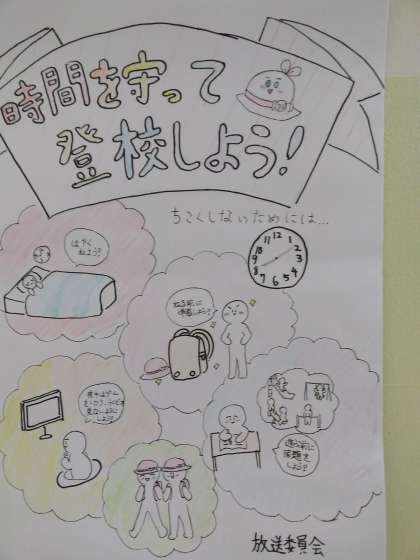 時間を守って
登校しよう!
ちこくしないためには…
12
1
2
3
4
5
6
7
8
9
10
11
はやく
ねよう?
ねる前に
準備しよう?
遊ぶ前に
宿題を
しよう?
放送委員会